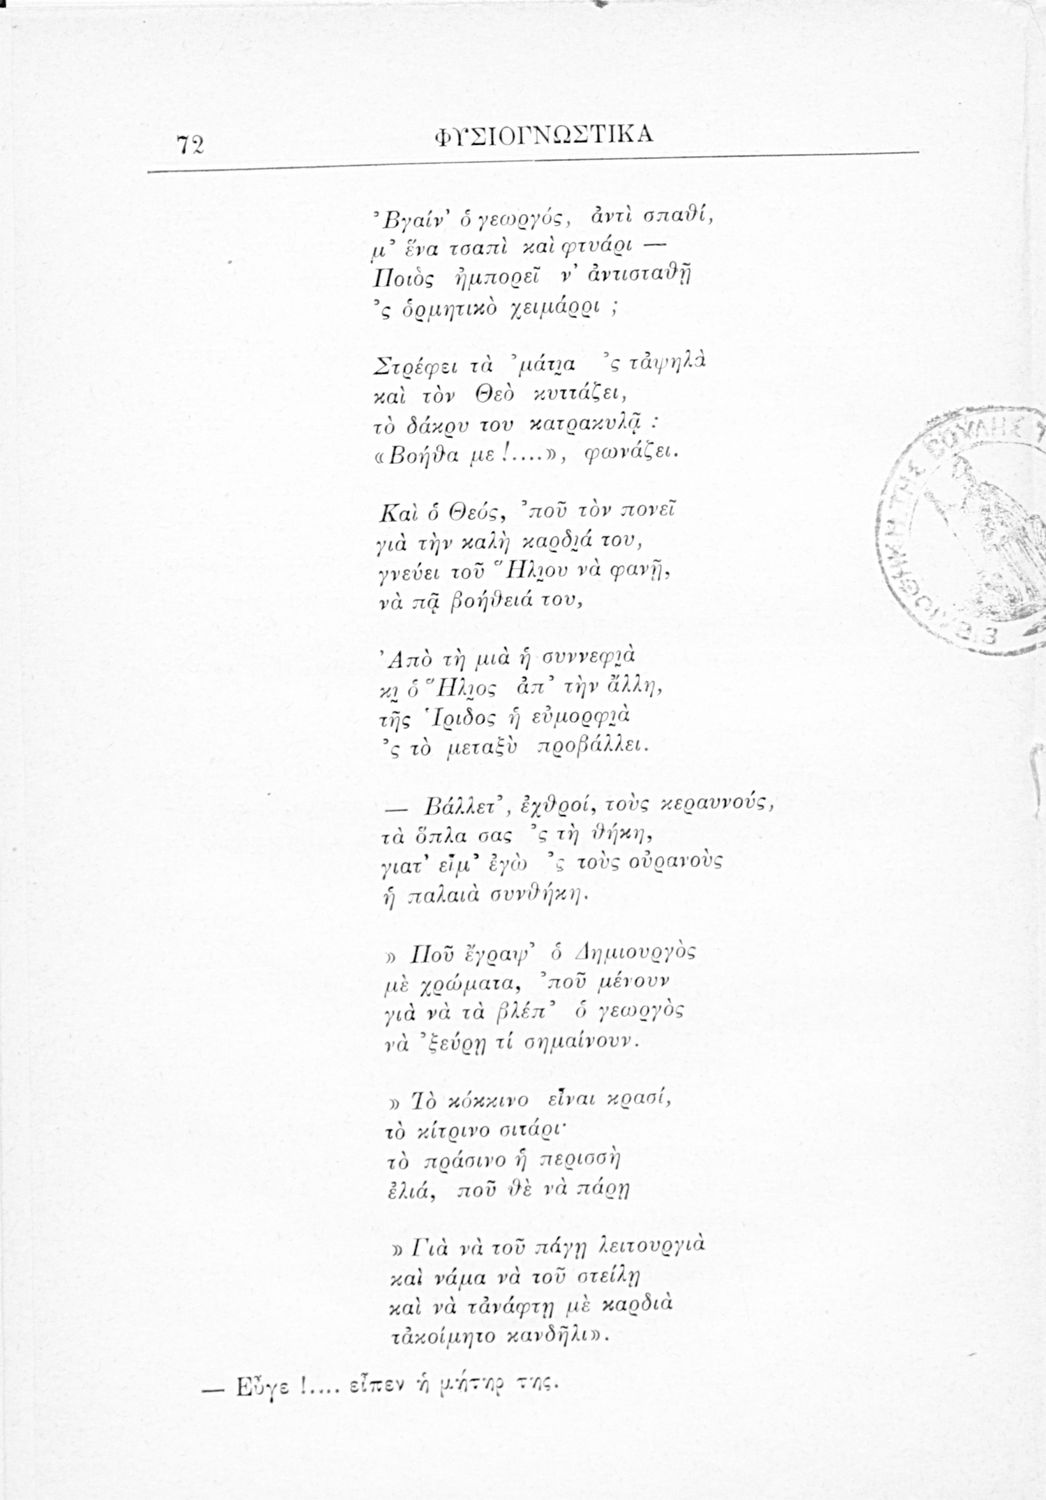 72
ΦΥΣΙΟΓΝΩΣΤΙΚΑ
Ἐβγαίν’ ὁ γεωργός, ἀντὶ σπαθί,
μ’ ἕνα τσαπὶ καὶ φτυάρι —
Ποιὸς ἠμπορεῖ ν’ ἀντισταθῇ
’ς ὁρμητικὸ χειμάρρι ;
Στρέφει τὰ ’μάτι̯α ’ς τἀψηλὰ
καὶ τὸν Θεὸ κυττάζει,
τὸ δάκρυ του κατρακυλᾷ :
«Βοήθα με !....», φωνάζει.
Καὶ ὁ Θεός, ’ποῦ τὸν πονεῖ
γιὰ τὴν καλὴ καρδι̯ά του,
γνεύει τοῦ Ἥλι̯ου νὰ φανῇ,
νὰ πᾷ βοήθειά του,
Ἀπὸ τὴ μιὰ ἡ συννεφι̯ὰ
κι̯ ὁ Ἥλι̯ος ἀπ’ τὴν ἄλλη,
τῆς Ἴριδος ἡ εὐμορφι̯ὰ
’ς τὸ μεταξὺ προβάλλει.
— Βάλλετ’, ἐχθροί, τοὺς κεραυνούς,
τὰ ὅπλα σας ’ς τὴ θήκη,
γιατ’ εἶμ’ ἐγὼ ’ς τοὺς οὐρανοὺς
ἡ παλαιὰ συνθήκη.
» Ποῦ ἔγραψ’ ὁ Δημιουργὸς
μὲ χρώματα, ’ποῦ μένουν
γιὰ νὰ τὰ βλέπ’ ὁ γεωργὸς
νὰ ’ξεύρῃ τί σημαίνουν.
» Τὸ κόκκινο εἶναι κρασί,
τὸ κίτρινο σιτάρι·
τὸ πράσινο ἡ περισσὴ
ἐλιά, ποῦ θὲ νὰ πάρῃ
» Γιὰ νὰ τοῦ πάγῃ λειτουργιὰ
καὶ νάμα νὰ τοῦ στείλῃ
καὶ νὰ τἀνάφτῃ μὲ καρδιὰ
τἀκοίμητο κανδῆλι».
— Εὖγε !.... εἶπεν ἡ μήτηρ της.
ΒΙΒΛΙΟΘΗΚΗ ΤΗΣ ΒΟΥΛΗΣ